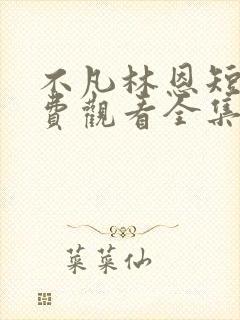 不凡林恩短
費觀看全集
菜菜仙